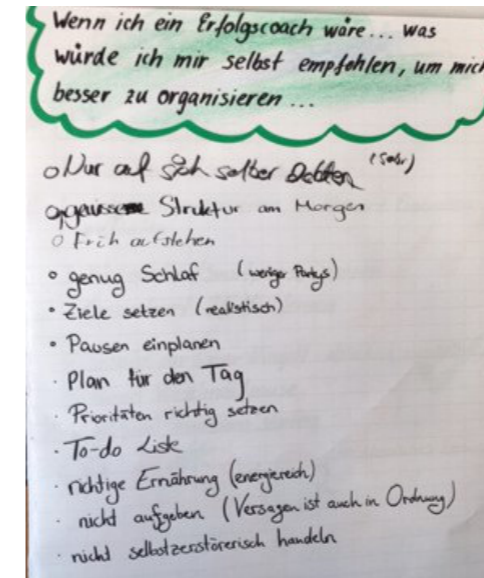 Wenn ich ein Erfolgscoach wäre... was
würde ich mir selbst empfehlen, um mich
besser zu organisieren...
Nur auf sich selber
Struktur am Morgen
Früh aufstehen
genug Schlaf (weniger Partys)
Ziele setzen (realistisch)
Pausen einplanen
Plan für den Tag
Prioritäten richtig setzen
To-do Liste
richtige Ernährung (energiereich)
nicht aufgeben (Versagen ist auch in Ordnung)
nicht selbstzerstörerisch handeln